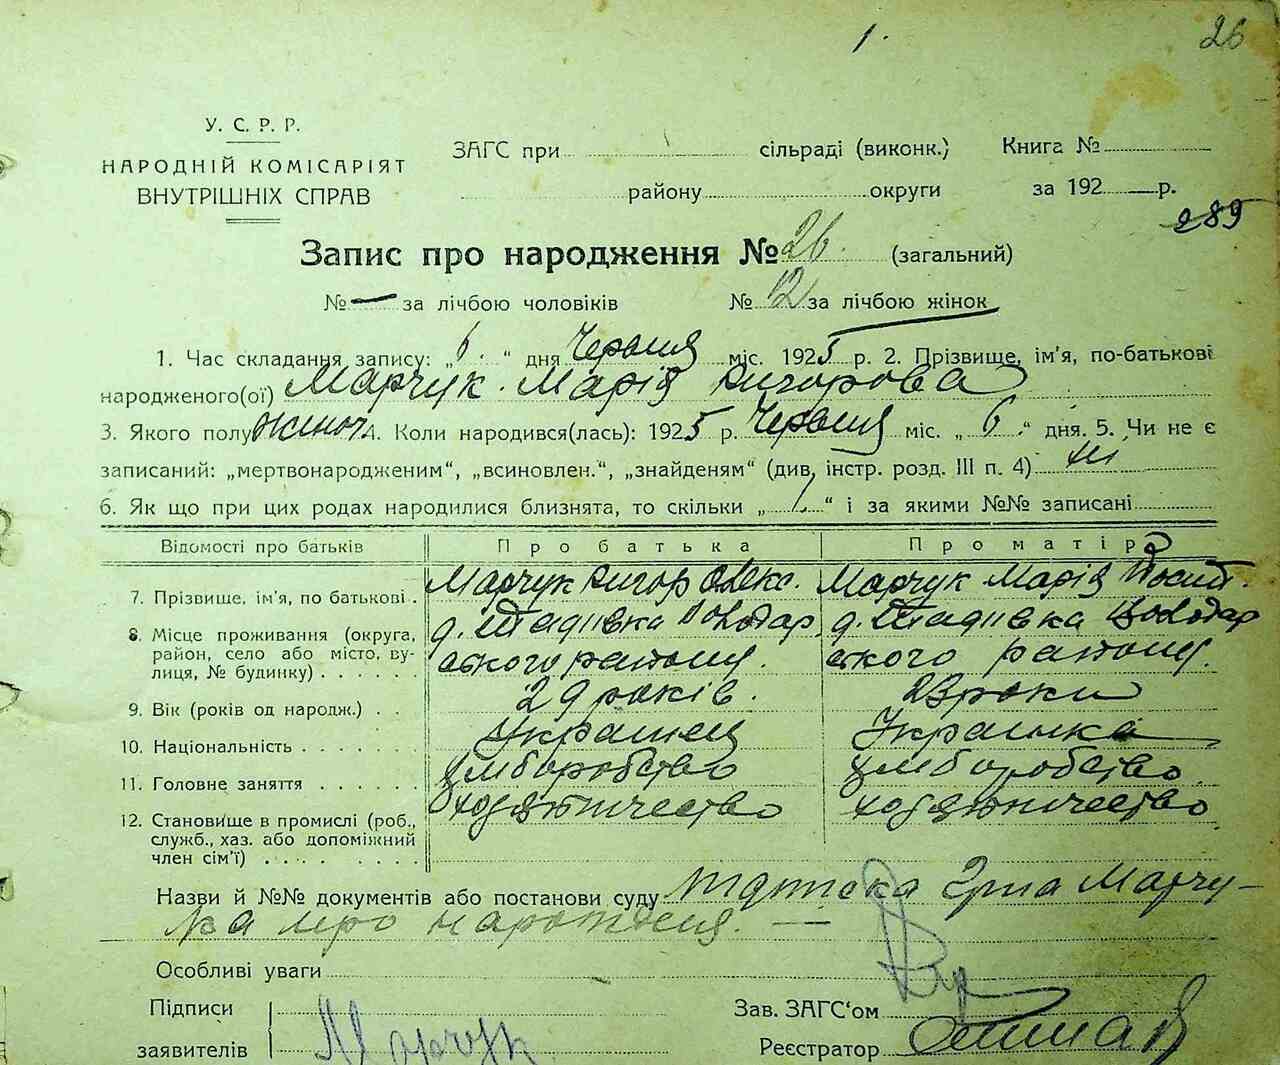 1.
26
У. С. Р. Р.
НАРОДНІЙ КОМІСАРІЯТ
ВНУТРІШНІХ СПРАВ
ЗАГС при сільраді (виконк.) Книга №
району округи за 192 — р.
289
Запис про народження № 26. (загальний)
№ — за лічбою чоловіків № 12 за лічбою жінок
1. Час складання запису: „ 6. “ дня Червня міс. 1925 р. 2. Прізвище, ім'я, по-батькові
народженого(ої) Марчук Марія Григорова
3. Якого полу жіноч 4. Коли народився(лась): 1925 р. Червня міс. „ 6 “ дня. 5. Чи не є
записаний: „мертвонародженим“, „всиновлен.“, „знайденям“ (див, інстр. розд. III п. 4) ні
6. Як що при цих родах народилися близнята, то скільки „ “ і за якими №№ записані
Відомості про батьків Про батька Про матір
7. Прізвище, ім'я, по батькові . Марчук Григор Олекс. Марчук Марія Йосип.
8. Місце проживання (округа, д. Тадіївка Володар д. Тадіївка Володар
район, село або місто, ву-
лиця, № будинку) . . . . . . ського району. ського району.
9. Вік (років од народж.) . . 29 років. 23 роки
10. Національність . . . . . . . Украинец Украинка
11. Головне заняття . . . . . . хліборобство хліборобство
12. Становище в промислі (роб.,
служб., хаз. або допоміжний
член сім'ї) . . . . . . .
Назви й №№ документів або постанови суду Марчу-
ка про народження. —
Особливі уваги
Підписи Зав. ЗАГС'ом
заявителів Марчук Реєстратор